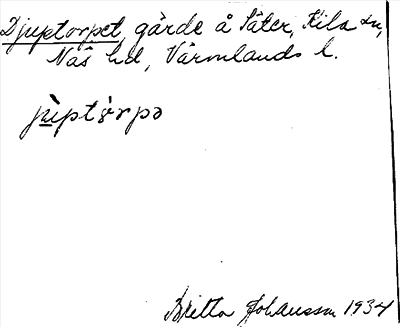 Djuptorpet, gärde å Säter, Kila sn,
Näs hd, Värmlands l.
jùptòrpə
Britta Johansson 1934